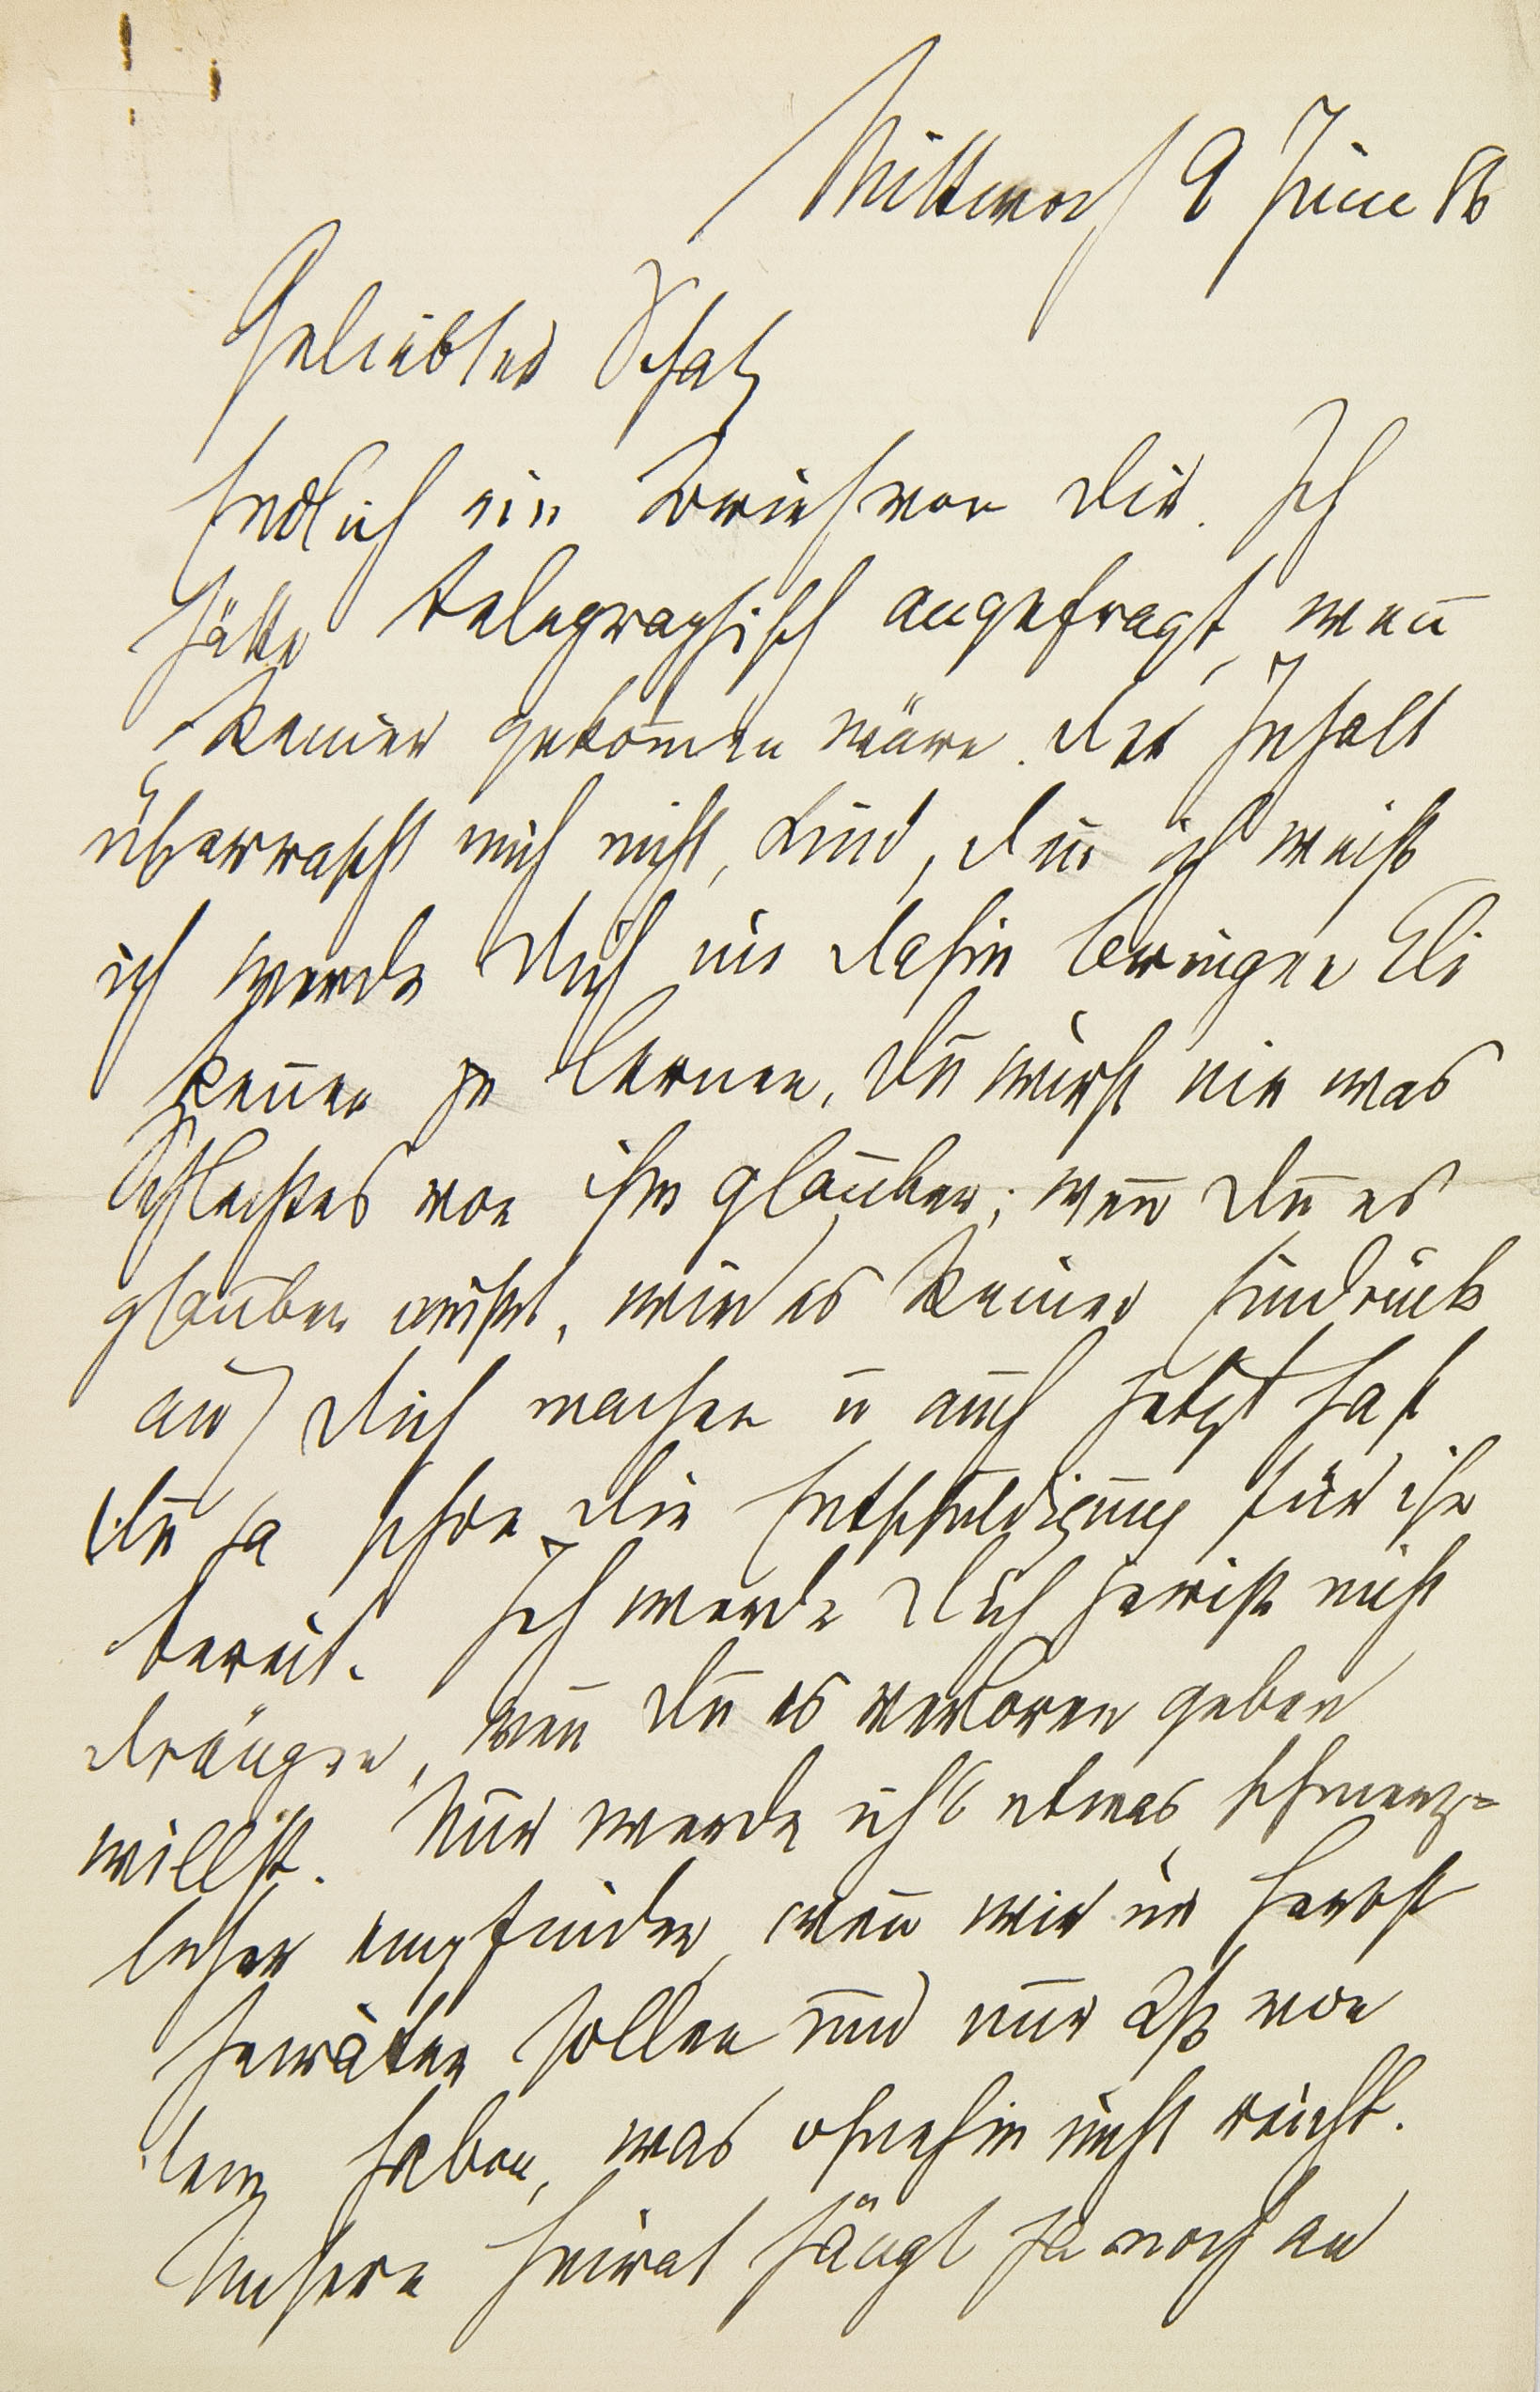 Mittwoch 9 Juni 86
Geliebter Schatz
Endlich ein Brief von Dir. Ich
hätte telegraphisch angefragt, wenn
keiner gekommen wäre. Der Inhalt
überrascht mich nicht, Kind, denn ich weiß
ich werde Dich nie dahin bringen Eli
kennen zu lernen, Du wirst nie was
Schlechtes von ihm glauben; wenn Du es
glauben mußt, wird es keinen Eindruck
auf Dich machen u auch jetzt hast
Du ja schon die Entschuldigung für ihn
bereit. Ich werde Dich gewiß nicht
drängen, wenn Du es verloren geben
willst. Nur werde ich's etwas schmerz=
licher empfinden, wenn wir im Herbst
heiraten sollen und nur das von
dem haben, was ohnehin nicht reicht.
Unsere Heirat hängt ja noch an